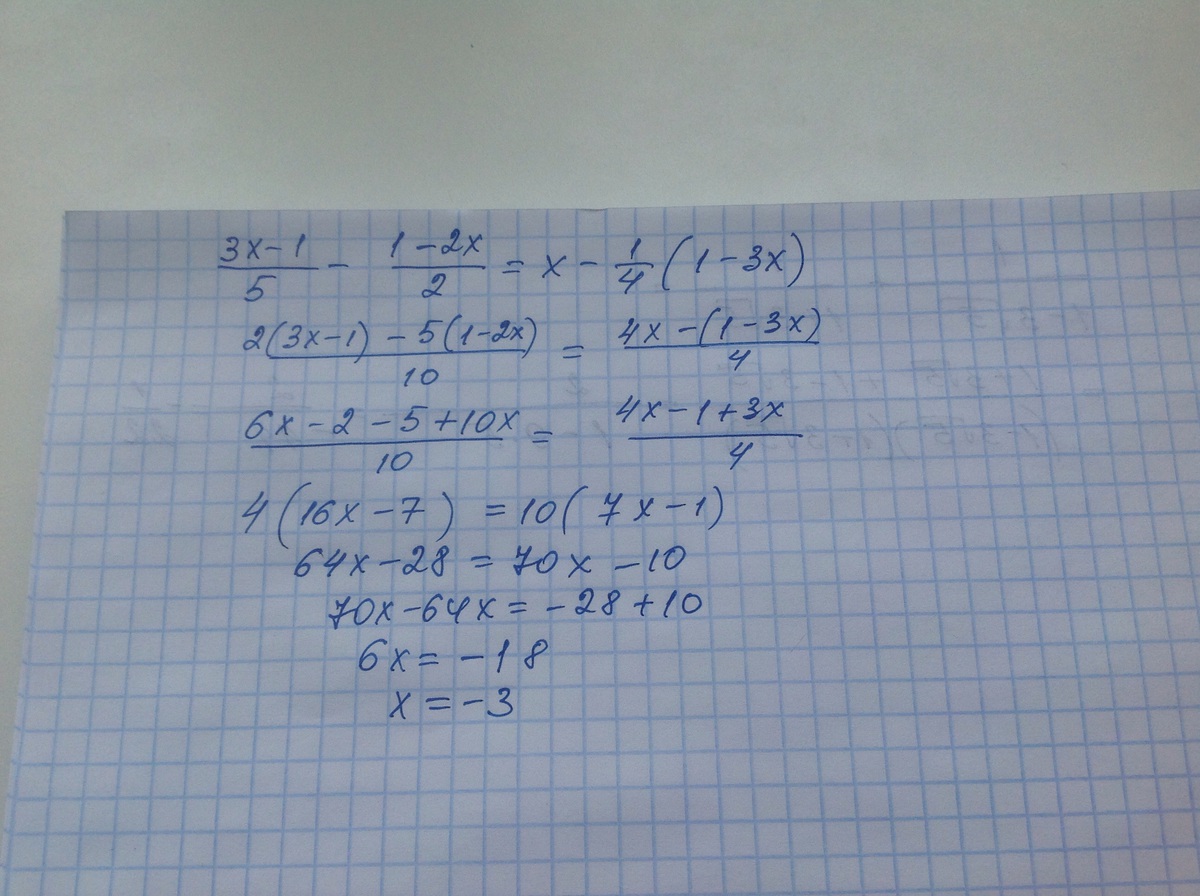 (3x-1)/5 - (1-2x)/2 = x - 1/4 (1-3x)
(2(3x-1) - 5(1-2x))/10 = (4x-(1-3x))/4
(6x-2-5+10x)/10 = (4x-1+3x)/4
4(16x-7) = 10(7x-1)
64x-28 = 70x-10
70x-64x = -28+10
6x = -18
x = -3